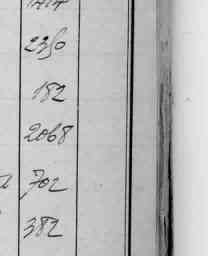 2350
182
2068
702
382